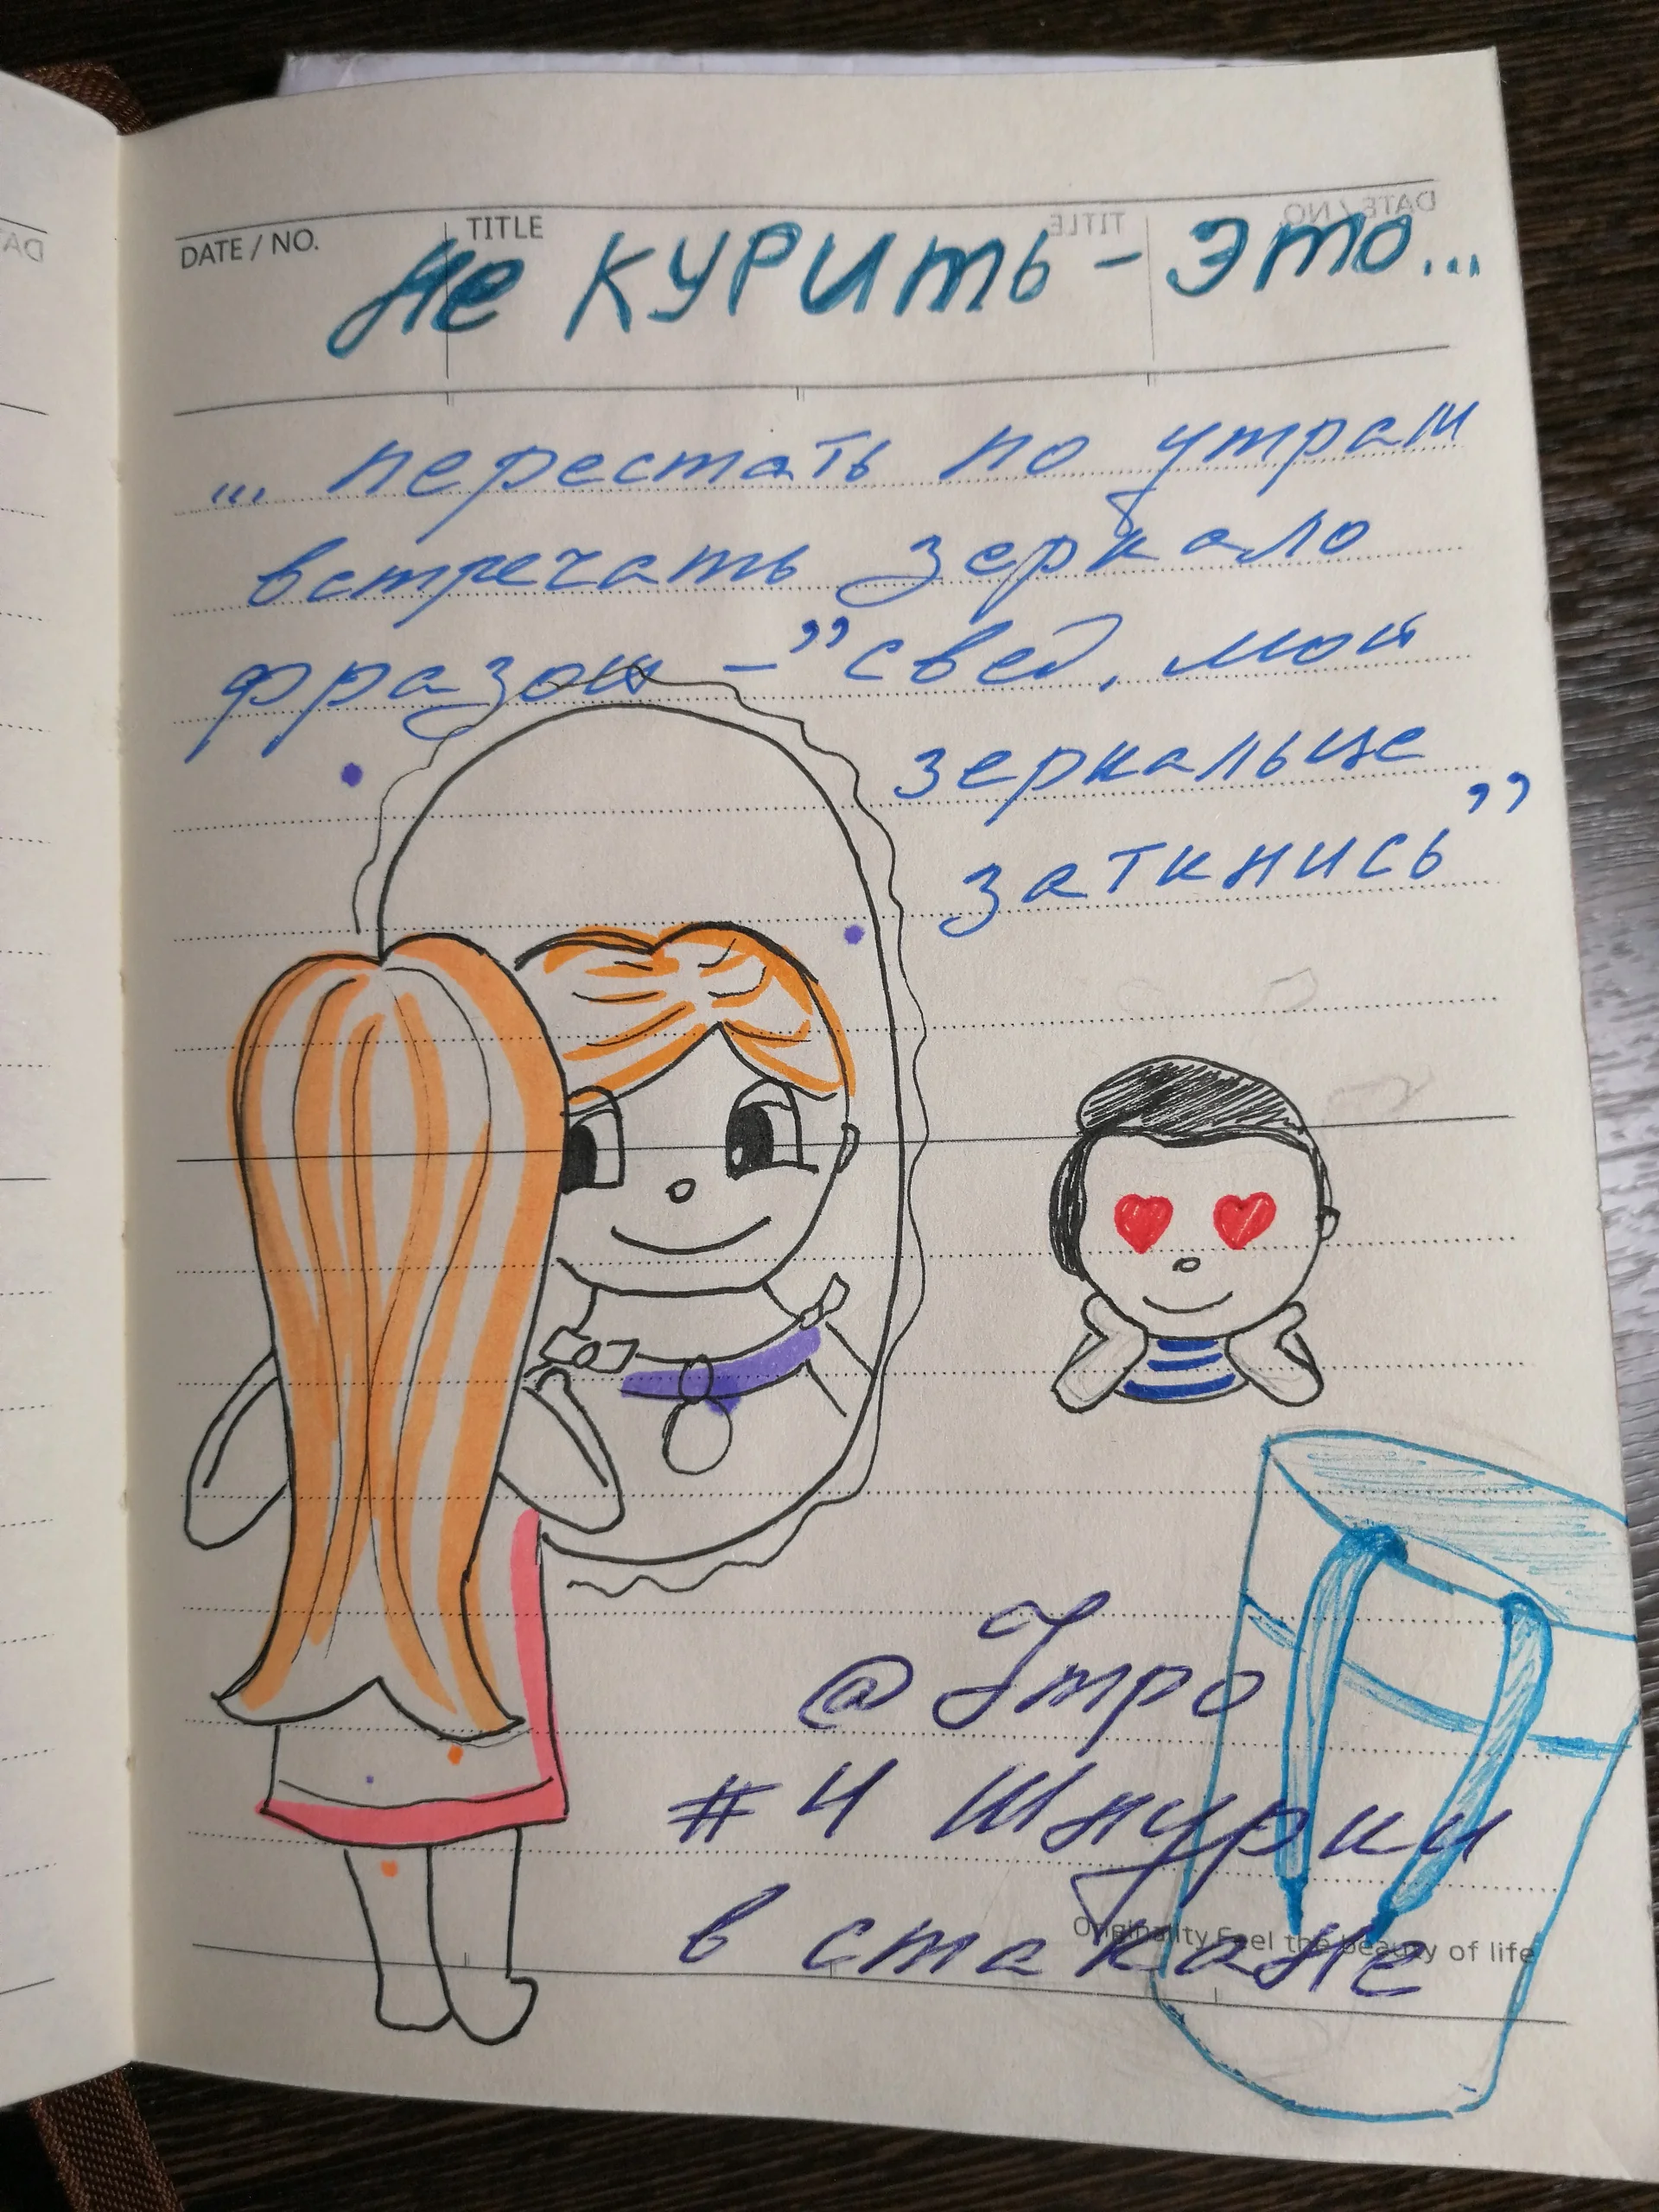 DATE / NO.
TITLE
Не курить - это...
... перестать по утрам
встречать зеркало
фразой - "свед, мой
зеркальце
заткнись"
@ Утро
#4 Шнурки
в стакане
Originality Feel the beauty of life